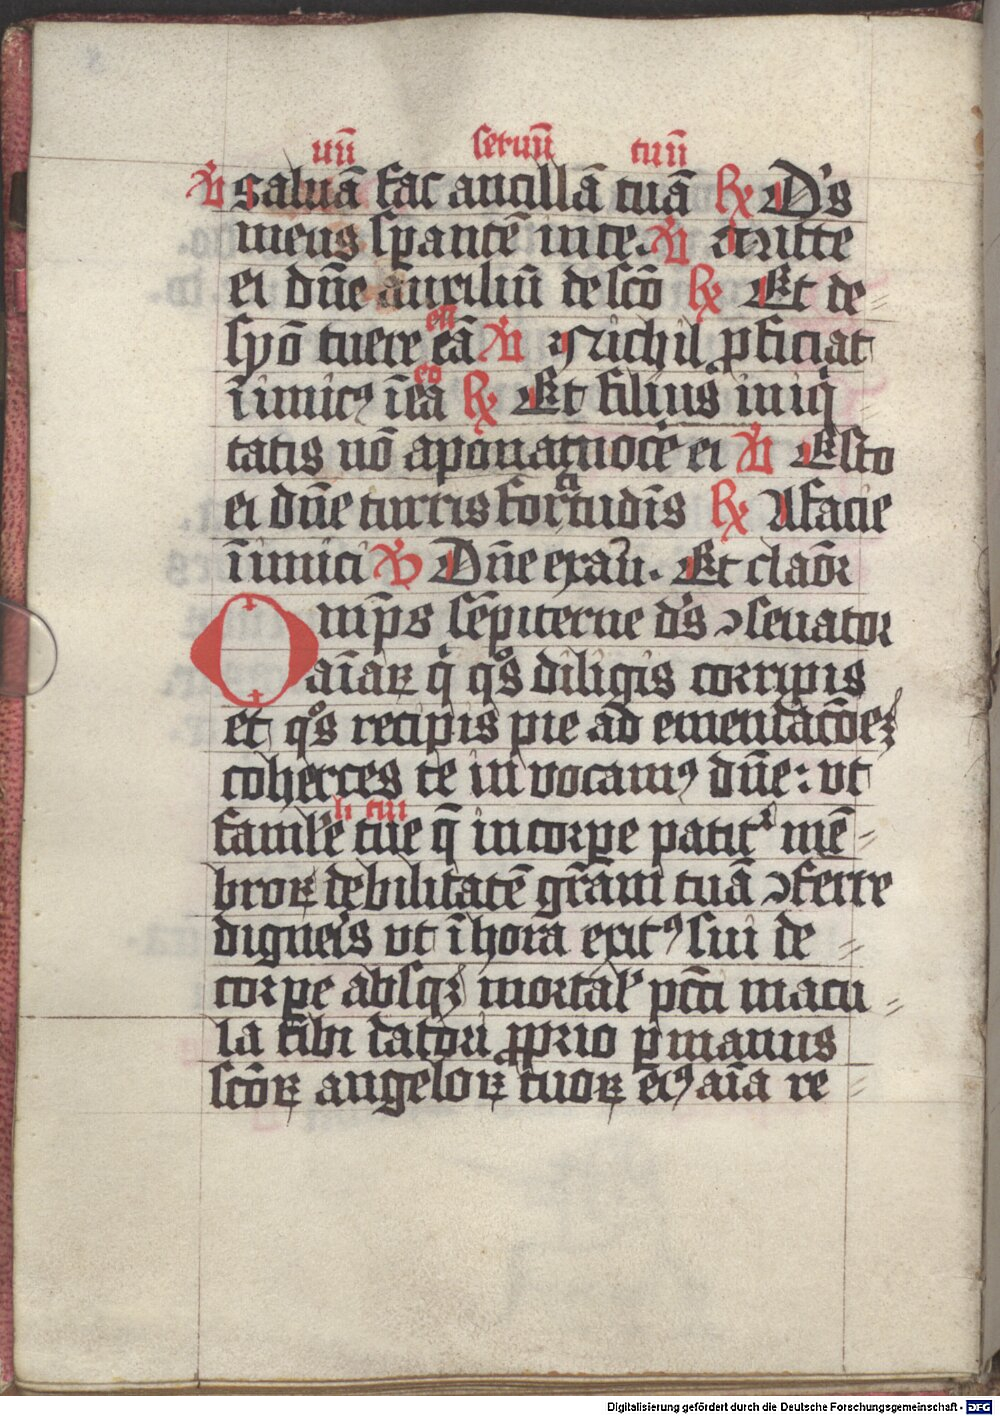 uū seruū tuū
℣ Saluā fac ancillā tuā ℟ D's
meus sꝑantē in te. ℣ Mitte
ei dn̄e auxiliū de scō ℟ Et de
esī
syō tuere eā ℣ Nichil ꝓficiat
eo
īimicꝰ ī ea ℟ Et filius iniqͥ
tatis nō aponat nocē ei ℣ Esto
ti
ei dn̄e turris fortudīs ℟ A facie
īimici ℣ Dn̄e exau. Et clamōr
Omp̄s sēpiterne d's ↄseruator
aīaꝝ qͥ qͦs diligis corripis
et qͦs recipis pie ad emendacōeꝫ
coherces te in vocamꝰ dn̄e: vt
li tui
famuľe tue q̄ in corꝑe patitͬ mē
broꝝ debilitatē gr̄am tuā ↄferre
digneīs vt ī hora exitꝰ sui de
corꝑe absqꝫ mortaľ pcc̄i macu
la tibi datori ꝓprio ꝑ manus
scōꝝ angeloꝝ tuoꝝ eiꝰ aīa re
Digitalisierung gefördert durch die Deutsche Forschungsgemeinschaft - DFG